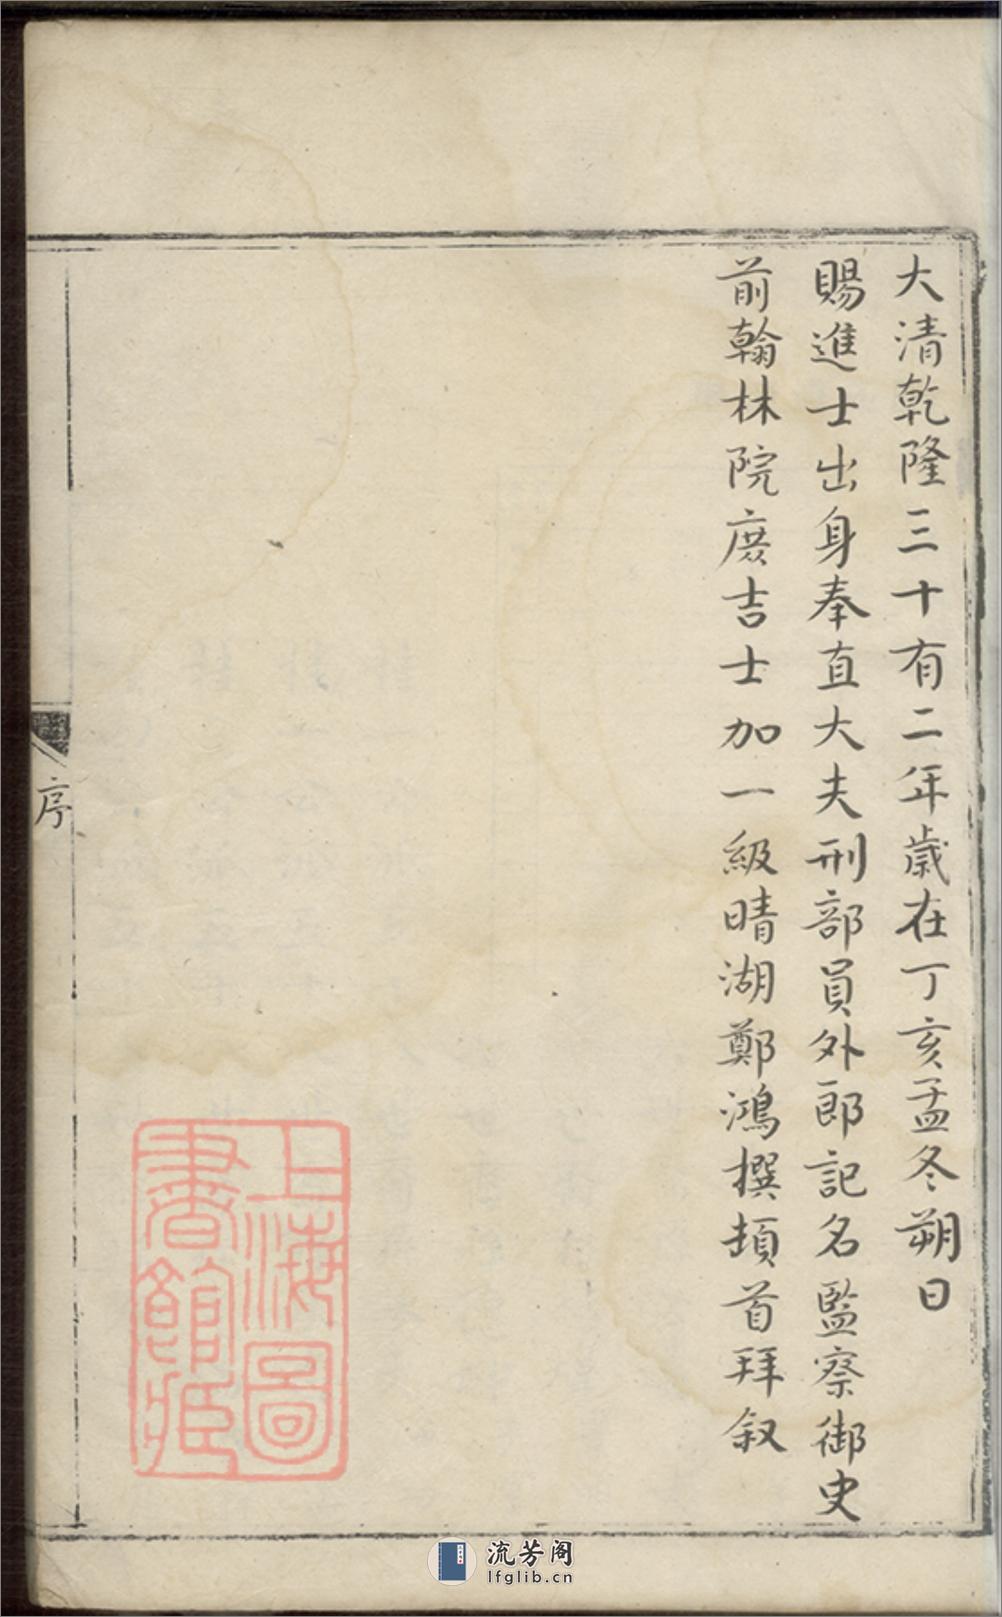 大清乾隆三十有二年歲在丁亥孟冬朔日
賜進士出身奉直大夫刑部員外郎記名監察御史
前翰林院庶吉士加一級晴湖鄭鴻撰頓首拜叙
序
上海圖
書館藏
流芳阁
lfglib.cn